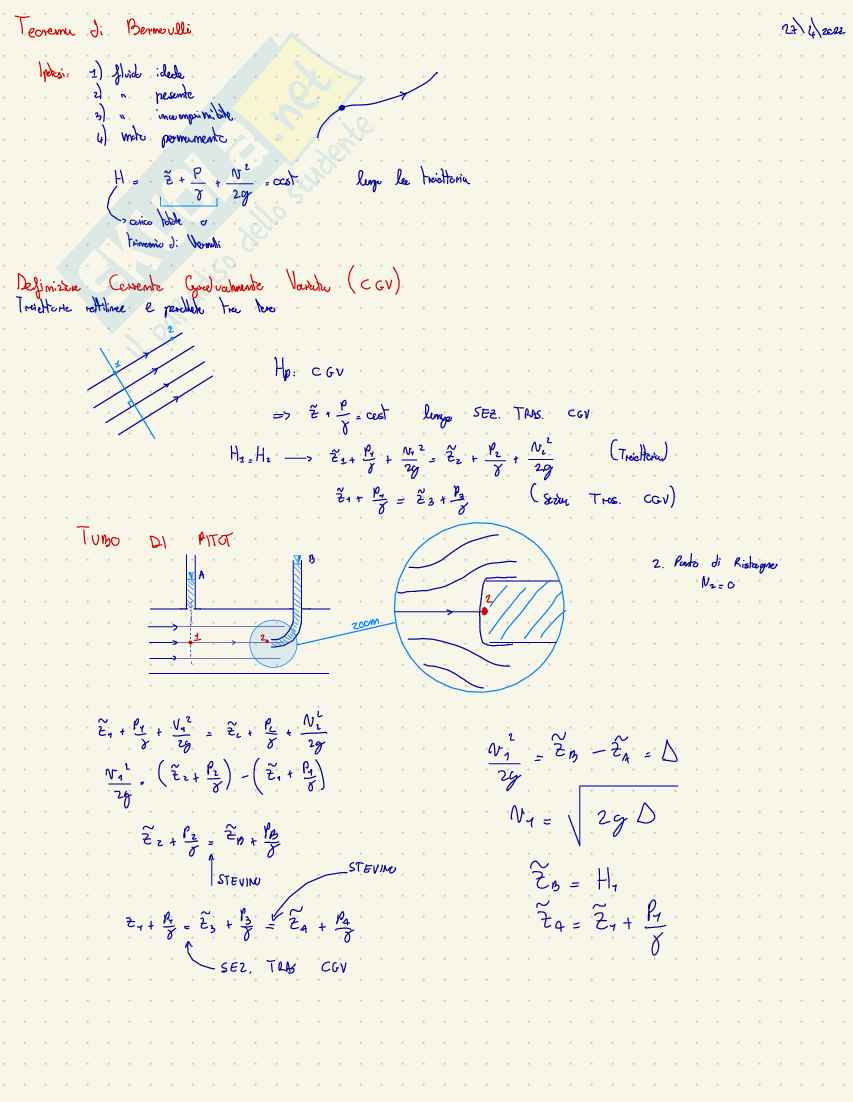 Teorema di Bernoulli
27/4/2022
Ipotesi: 1) fluido ideale
2) " pesante
3) " incomprimibile
4) moto permanente
H = z̃ + P/γ + v²/2g = cost lungo la traiettoria
→ carico totale o
trinomio di Vernulli
SKUOLA.net
il paradiso dello studente
Definizione Corrente Gradualmente Variata (CGV)
Traiettorie rettilinee e parallele tra loro
1
2
Hp: CGV
=> z̃ + P/γ = cost lungo SEZ. TRAS. CGV
H₁ = H₂ → z̃₁ + P₁/γ + v₁²/2g = z̃₂ + P₂/γ + v₂²/2g (Traiettoria)
z̃₁ + P₁/γ = z̃₃ + P₃/γ (Sezion Tras. CGV)
TUBO DI PITOT
A
B
1
2
zoom
2
2. Punto di Ristagno
v₂ = 0
z̃₁ + P₁/γ + V₁²/2g = z̃₂ + P₂/γ + v₂²/2g
v₁²/2g = (z̃₂ + P₂/γ) - (z̃₁ + P₁/γ)
z̃₂ + P₂/γ = z̃B + PB/γ
STEVINO
STEVINO
z₁ + P₁/γ = z̃₃ + P₃/γ = z̃A + PA/γ
SEZ. TRAS CGV
v₁²/2g = z̃B - z̃A = Δ
v₁ = √(2gΔ)
z̃B = H₁
z̃A = z̃₁ + P₁/γ